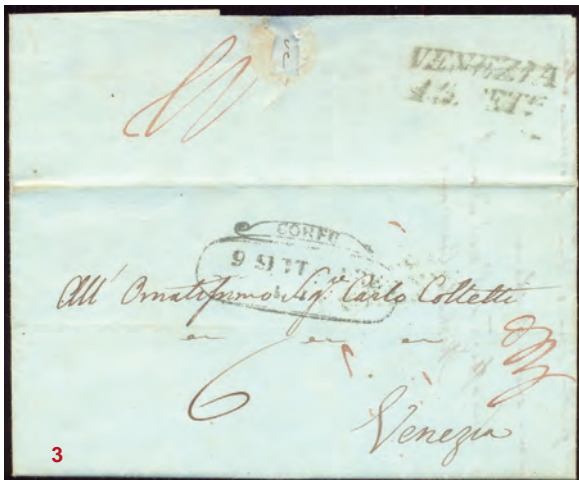 VENEZIA
CORFU
9 SETT
All' Ornatissimo Sig.re Carlo Colletti
6
Venezia
3